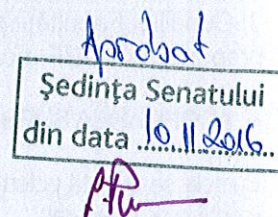 Aprobat
Ședința Senatului
din data 10.11.2016.